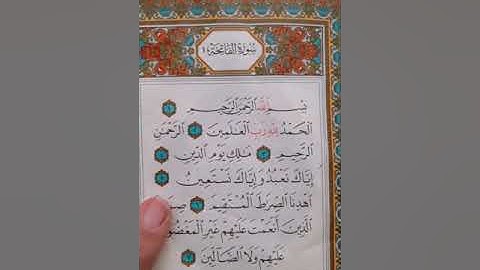 سُورَةُ الفَاتِحَةِ ١
بِسْمِ اللَّهِ الرَّحْمَٰنِ الرَّحِيمِ ١
الْحَمْدُ لِلَّهِ رَبِّ الْعَالَمِينَ ٢ الرَّحْمَٰنِ
الرَّحِيمِ ٣ مَالِكِ يَوْمِ الدِّينِ ٤
إِيَّاكَ نَعْبُدُ وَإِيَّاكَ نَسْتَعِينُ ٥
اهْدِنَا الصِّرَاطَ الْمُسْتَقِيمَ ٦
الَّذِينَ أَنْعَمْتَ عَلَيْهِمْ غَيْرِ
عَلَيْهِمْ وَلَا الضَّالِّينَ ٧